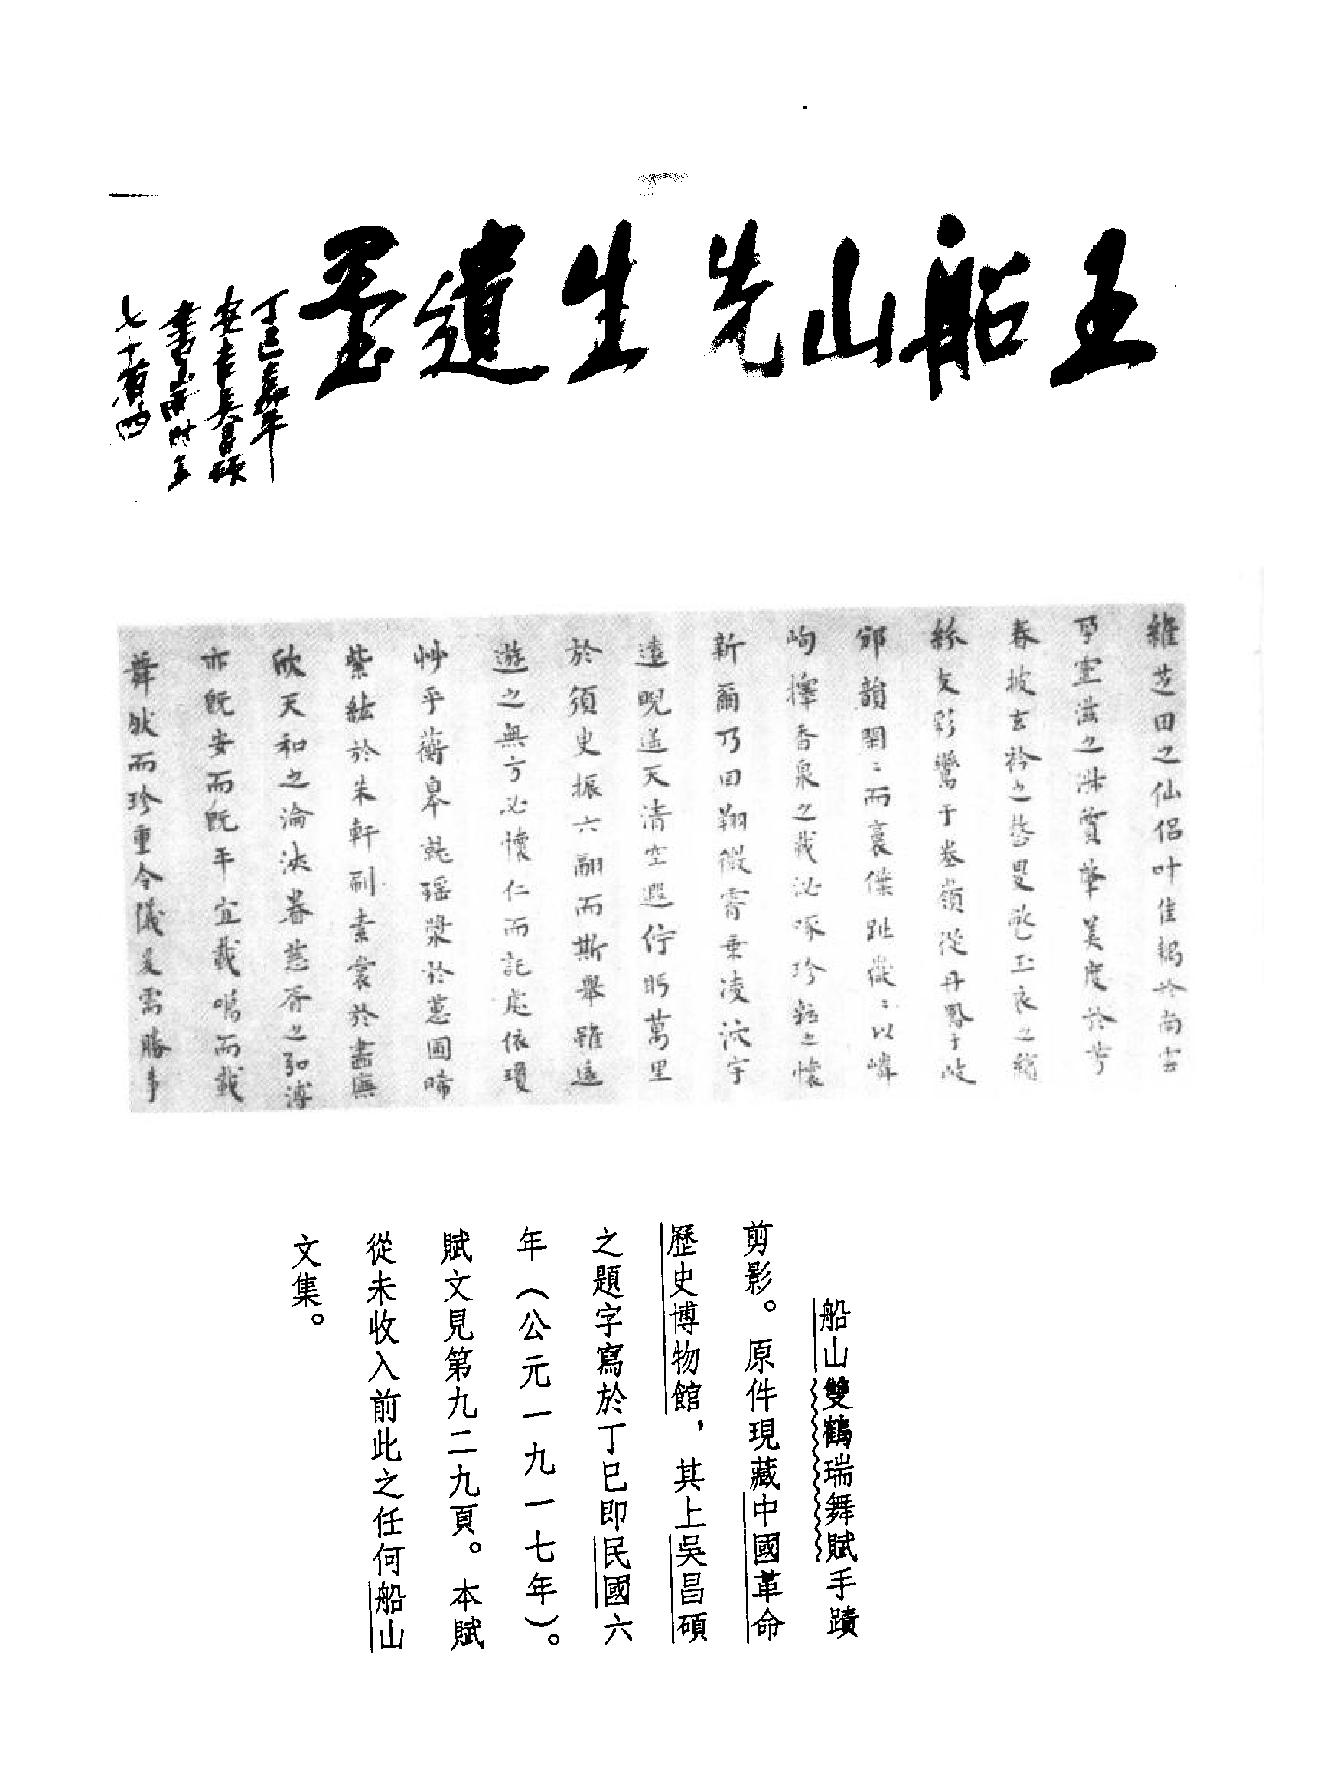 王船山先生遺墨
丁巳嘉年
安吉吳昌碩
書名時年
七十有四
雜芝田之仙侶叶佳兆於南雲
孕靈滋之姝質肇美度於芳
春披玄衿之整曳紀玉衣之
絲友彩鸞于叁嶺從丹鳳于岐
邠韻閑閑而裏傑趾徵徵以嶙
峋擇香泉之載泌啄珍粒之懷
新爾乃回翔微霄乘凌泬宇
遠睨遙天清空遐佇眄萬里
於須臾振六翮而斯舉雖遠
遊之無方必懷仁而託處依瓊
妙乎蘅皋毓瑶漿於蕙圃啼
紫紘於朱軒刷素裳於畫廡
欣天和之淪浹眷慈吝之弘溥
亦既安而既平宜載鳴而載
舞狀而珍重令儀
船山雙鶴瑞舞賦手蹟
剪影。原件現藏中國革命
歷史博物館，其上吳昌碩
之題字寫於丁巳即民國六
年（公元一九一七年）。
賦文見第九二九頁。本賦
從未收入前此之任何船山
文集。